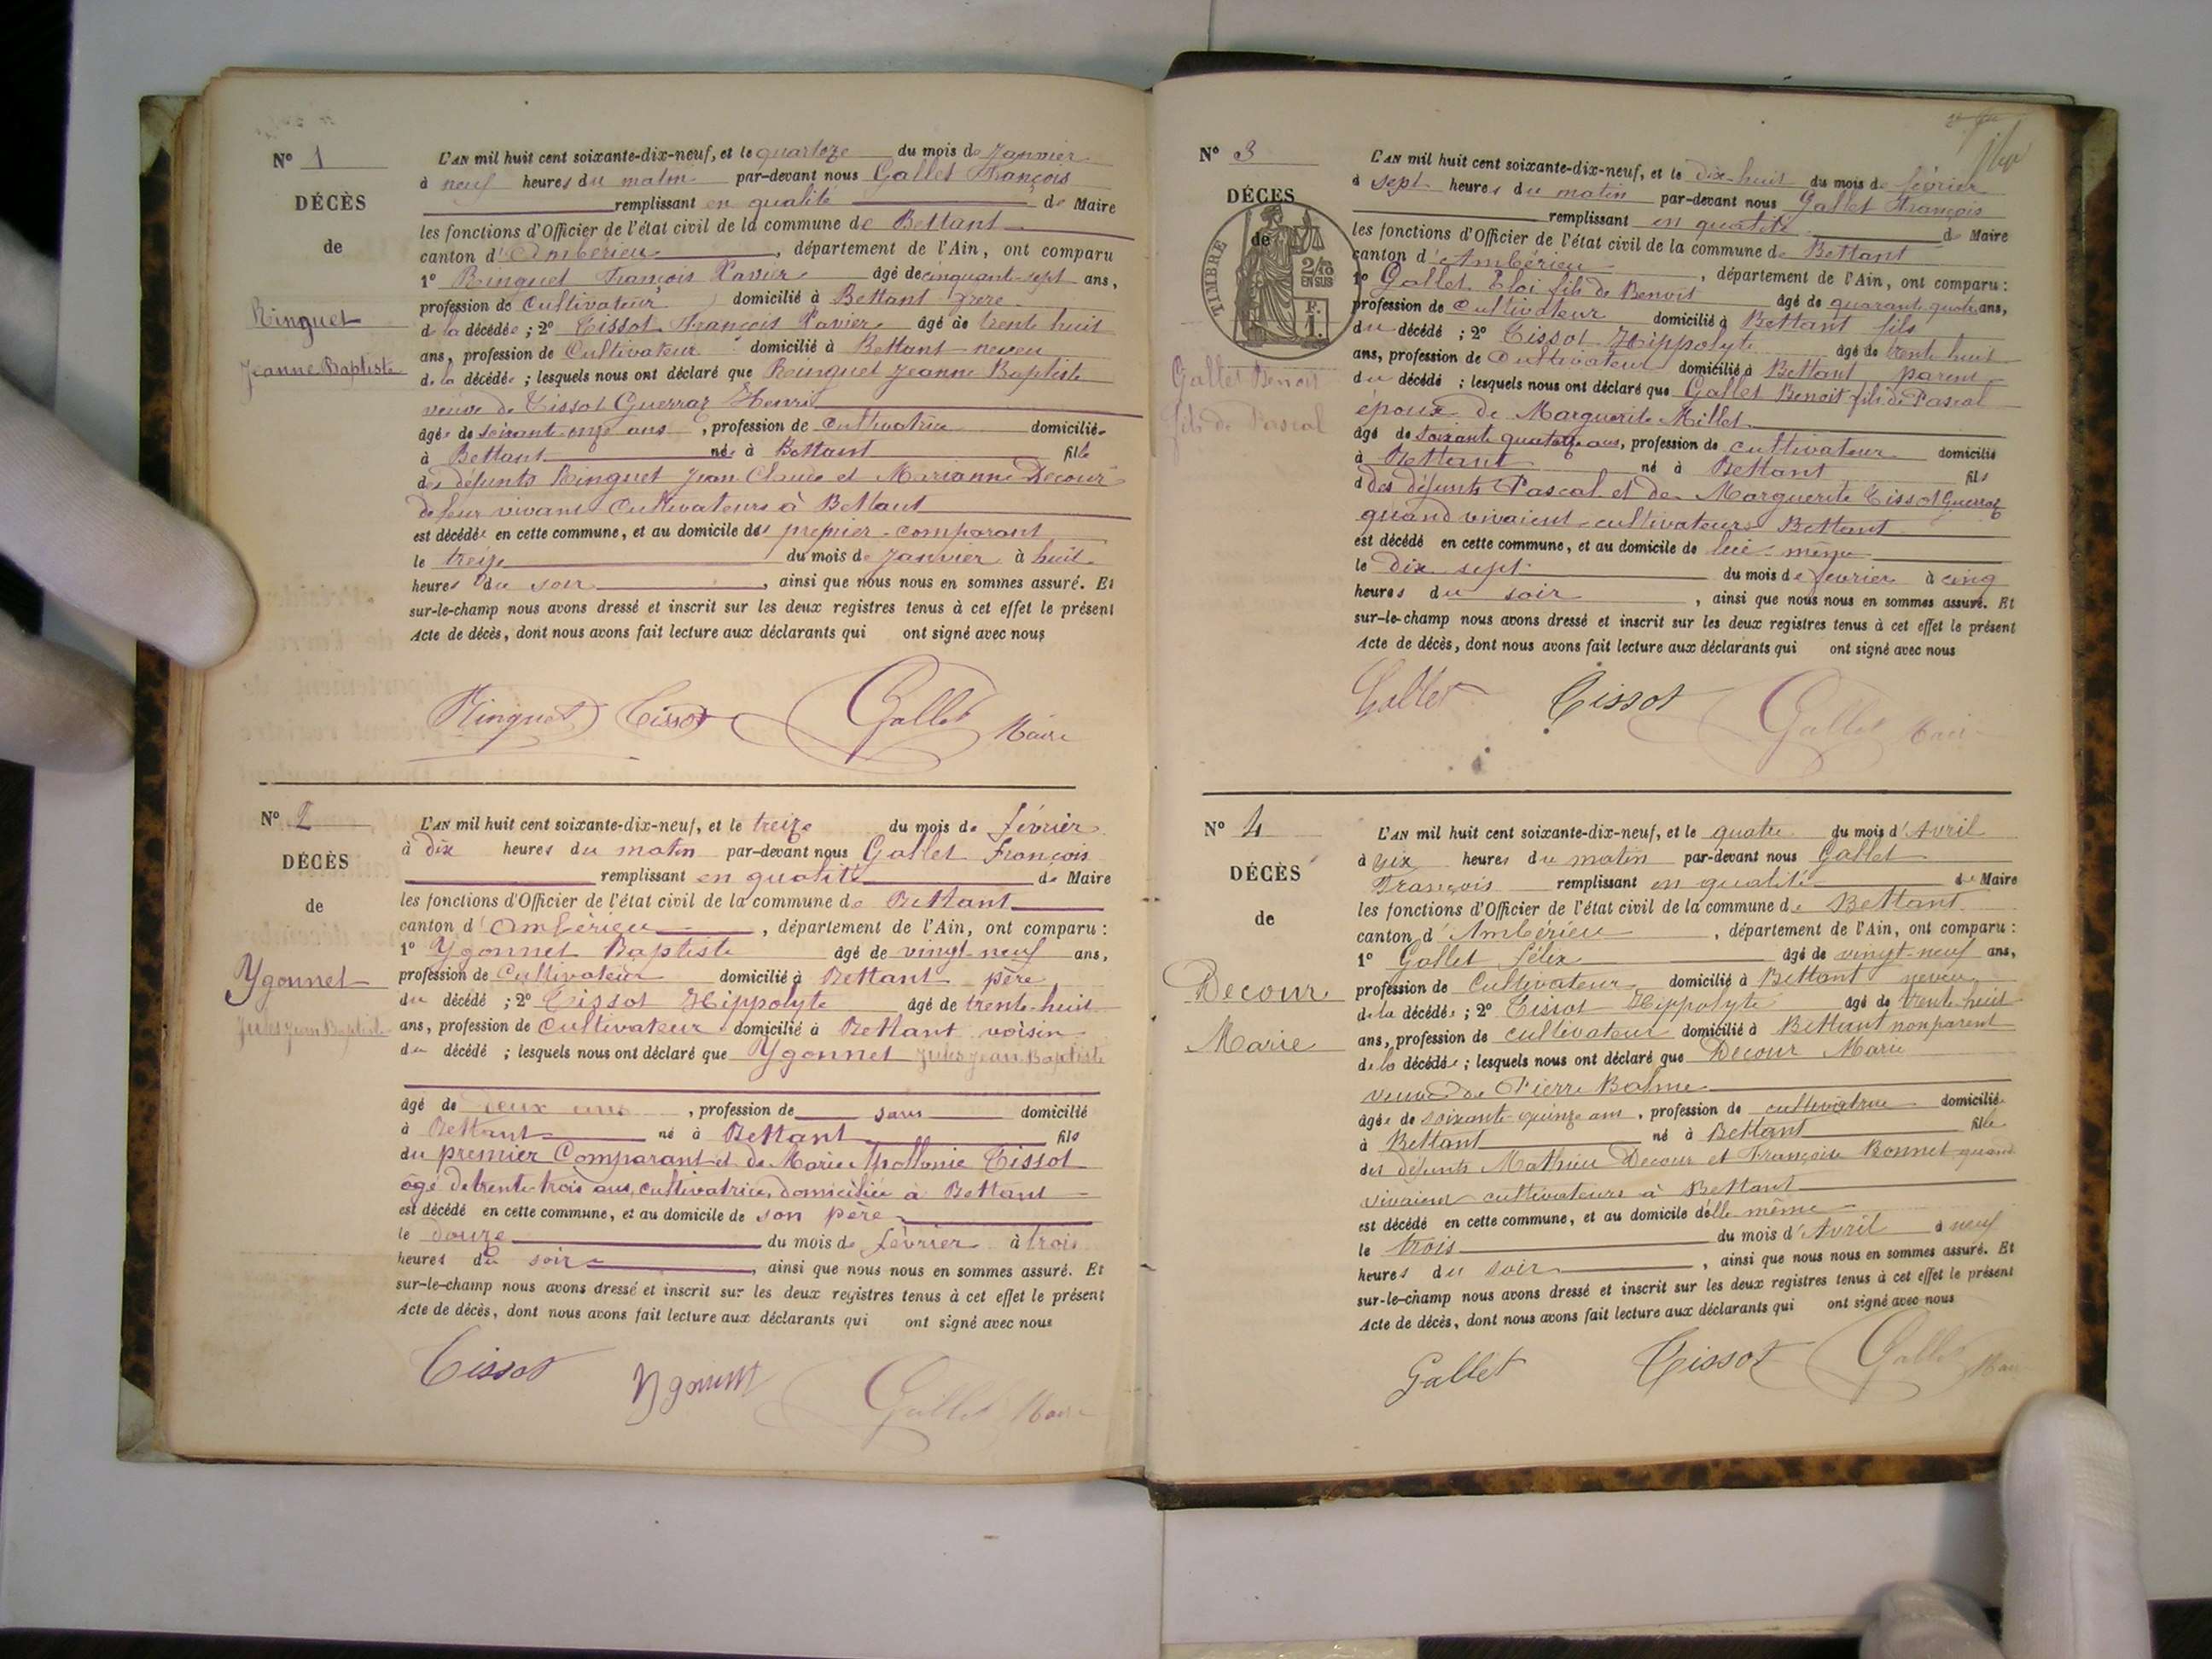 N° 1
DÉCÈS
de
Ringuet
Jeanne Baptiste
L'AN mil huit cent soixante-dix-neuf, et le quartoze du mois de Janvier
à neuf heures du matin par-devant nous Gallet François
remplissant en qualité de Maire
les fonctions d'Officier de l'état civil de la commune de Bettant
canton d'Ambérieu, département de l'Ain, ont comparu
1° Ringuet François Xavier âgé de cinquant-sept ans,
profession de Cultivateur domicilié à Bettant frère
de la décédée ; 2° Tissot François Xavier âgé de trente huit
ans, profession de Cultivateur domicilié à Bettant neveu
de la décédée ; lesquels nous ont déclaré que Ringuet Jeanne Baptiste
veuve de Tissot Guerraz Henri
âgée de soixante onze ans, profession de cultivatrice domiciliée
à Bettant née à Bettant fille
des défunts Ringuet Jean Claude et Marianne Decour
de leur vivant Cultivateurs à Bettant
est décédée en cette commune, et au domicile des premier comparant
le treize du mois de Janvier à huit
heures du soir, ainsi que nous nous en sommes assuré. Et
sur-le-champ nous avons dressé et inscrit sur les deux registres tenus à cet effet le présent
Acte de décès, dont nous avons fait lecture aux déclarants qui ont signé avec nous
Ringuet Tissot Gallet Maire
N° 2
DÉCÈS
de
Ygonnet
Jules Jean Baptiste
L'AN mil huit cent soixante-dix-neuf, et le treize du mois de février
à dix heures du matin par-devant nous Gallet François
remplissant en qualité de Maire
les fonctions d'Officier de l'état civil de la commune de Bettant
canton d'Ambérieu, département de l'Ain, ont comparu :
1° Ygonnet Baptiste âgé de vingt-neuf ans,
profession de Cultivateur domicilié à Bettant père
du décédé ; 2° Tissot Hippolyte âgé de trente-huit
ans, profession de Cultivateur domicilié à Bettant voisin
du décédé ; lesquels nous ont déclaré que Ygonnet Jules Jean Baptiste
âgé de deux ans, profession de sans domicilié
à Bettant né à Bettant fils
du premier Comparant et de Marie Apollonie Tissot
âgé de trente-trois ans, cultivatrice, domiciliée à Bettant
est décédé en cette commune, et au domicile de son père
le douze du mois de février à trois
heures du soir, ainsi que nous nous en sommes assuré. Et
sur-le-champ nous avons dressé et inscrit sur les deux registres tenus à cet effet le présent
Acte de décès, dont nous avons fait lecture aux déclarants qui ont signé avec nous
Tissot Ygonnet Gallet Maire
N° 3
DÉCÈS
de
TIMBRE
2/10
EN SUS
F.
1.
Gallet Benoit
fils de Pascal
L'AN mil huit cent soixante-dix-neuf, et le dix-huit du mois de février
à sept heures du matin par-devant nous Gallet François
remplissant en qualité de Maire
les fonctions d'Officier de l'état civil de la commune de Bettant
canton d'Ambérieu, département de l'Ain, ont comparu :
1° Gallet Eloi fils de Benoit âgé de quarante quatre ans,
profession de cultivateur domicilié à Bettant fils
du décédé ; 2° Tissot Hippolyte âgé de trente huit
ans, profession de Cultivateur domicilié à Bettant parent
du décédé ; lesquels nous ont déclaré que Gallet Benoit fils de Pascal
époux de Marguerite Millet
âgé de soixante quatorze ans, profession de cultivateur domicilié
à Bettant né à Bettant fils
des défunts Pascal et de Marguerite Tissot Guerraz
quand vivaient cultivateurs Bettant
est décédé en cette commune, et au domicile de lui-même
le Dix sept du mois de février à cinq
heures du soir, ainsi que nous nous en sommes assuré. Et
sur-le-champ nous avons dressé et inscrit sur les deux registres tenus à cet effet le présent
Acte de décès, dont nous avons fait lecture aux déclarants qui ont signé avec nous
Gallet Tissot Gallet Maire
N° 4
DÉCÈS
de
Decour
Marie
L'AN mil huit cent soixante-dix-neuf, et le quatre du mois d'Avril
à heures du matin par-devant nous Gallet
François remplissant en qualité de Maire
les fonctions d'Officier de l'état civil de la commune de Bettant
canton d'Ambérieu, département de l'Ain, ont comparu :
1° Gallet félix âgé de vingt-neuf ans,
profession de Cultivateur domicilié à Bettant neveu
de la décédée ; 2° Tissot Hippolyte âgé de trente huit
ans, profession de cultivateur domicilié à Bettant non parent
de la décédée ; lesquels nous ont déclaré que Decour Marie
veuve de Pierre Balme
âgée de soixante-quinze ans, profession de cultivatrice domiciliée
à Bettant né à Bettant fille
des défunts Mathieu Decour et Françoise Bonnet quand
vivaient cultivateurs à Bettant
est décédé en cette commune, et au domicile d'elle même
le trois du mois d'Avril à neuf
heures du soir, ainsi que nous nous en sommes assuré. Et
sur-le-champ nous avons dressé et inscrit sur les deux registres tenus à cet effet le présent
Acte de décès, dont nous avons fait lecture aux déclarants qui ont signé avec nous
Gallet Tissot Gallet Maire